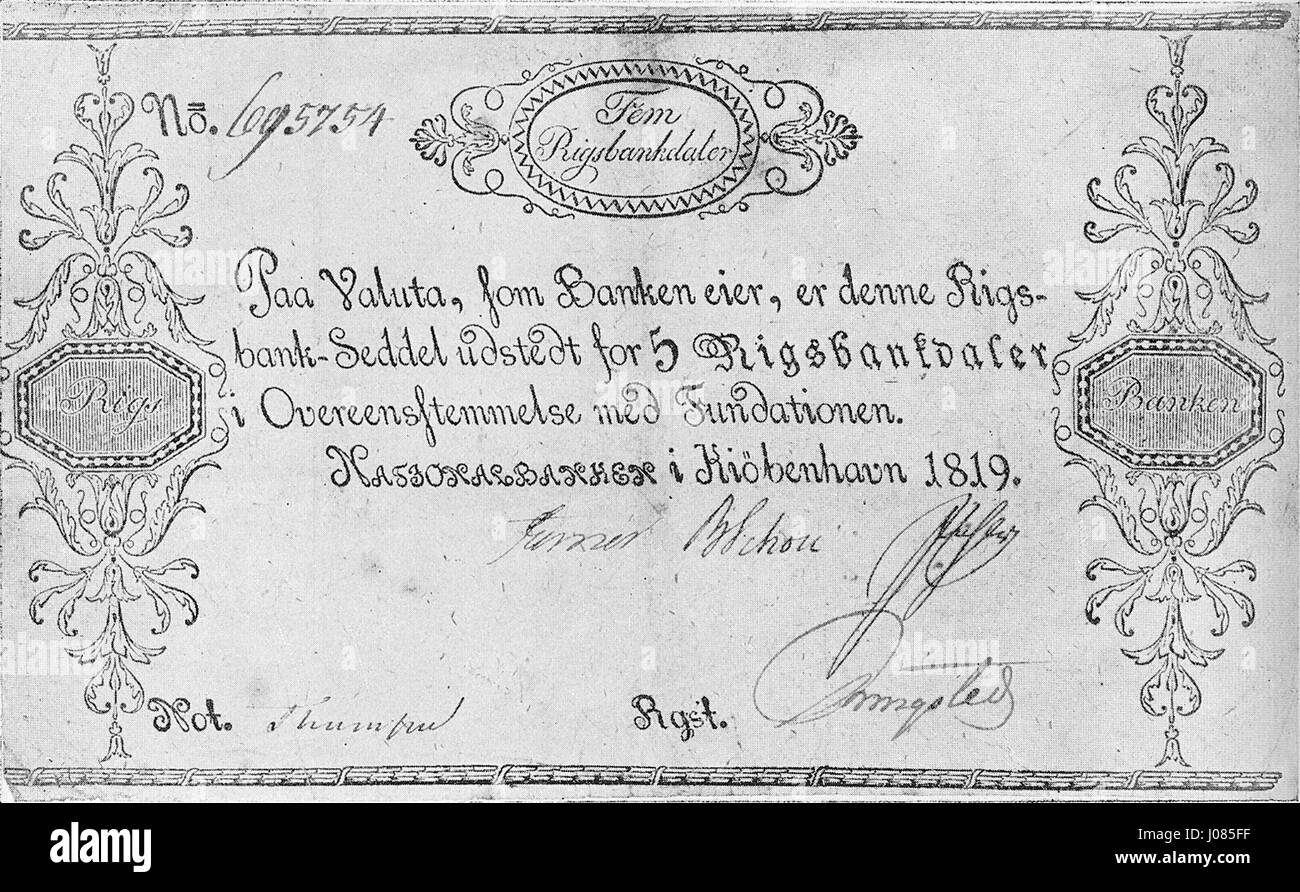 No. 695754
Fem
Rigsbankdaler
Paa Valuta, som Banken eier, er denne Rigs-
bank-Seddel udstedt for 5 Rigsbankdaler
i Overeensstemmelse med Fundationen.
NATIONALBANKEN i Kiöbenhavn 1819.
Rigs
Banken
BSchou
Not.
Rgst.
alamy
Image ID: J085FF
www.alamy.com